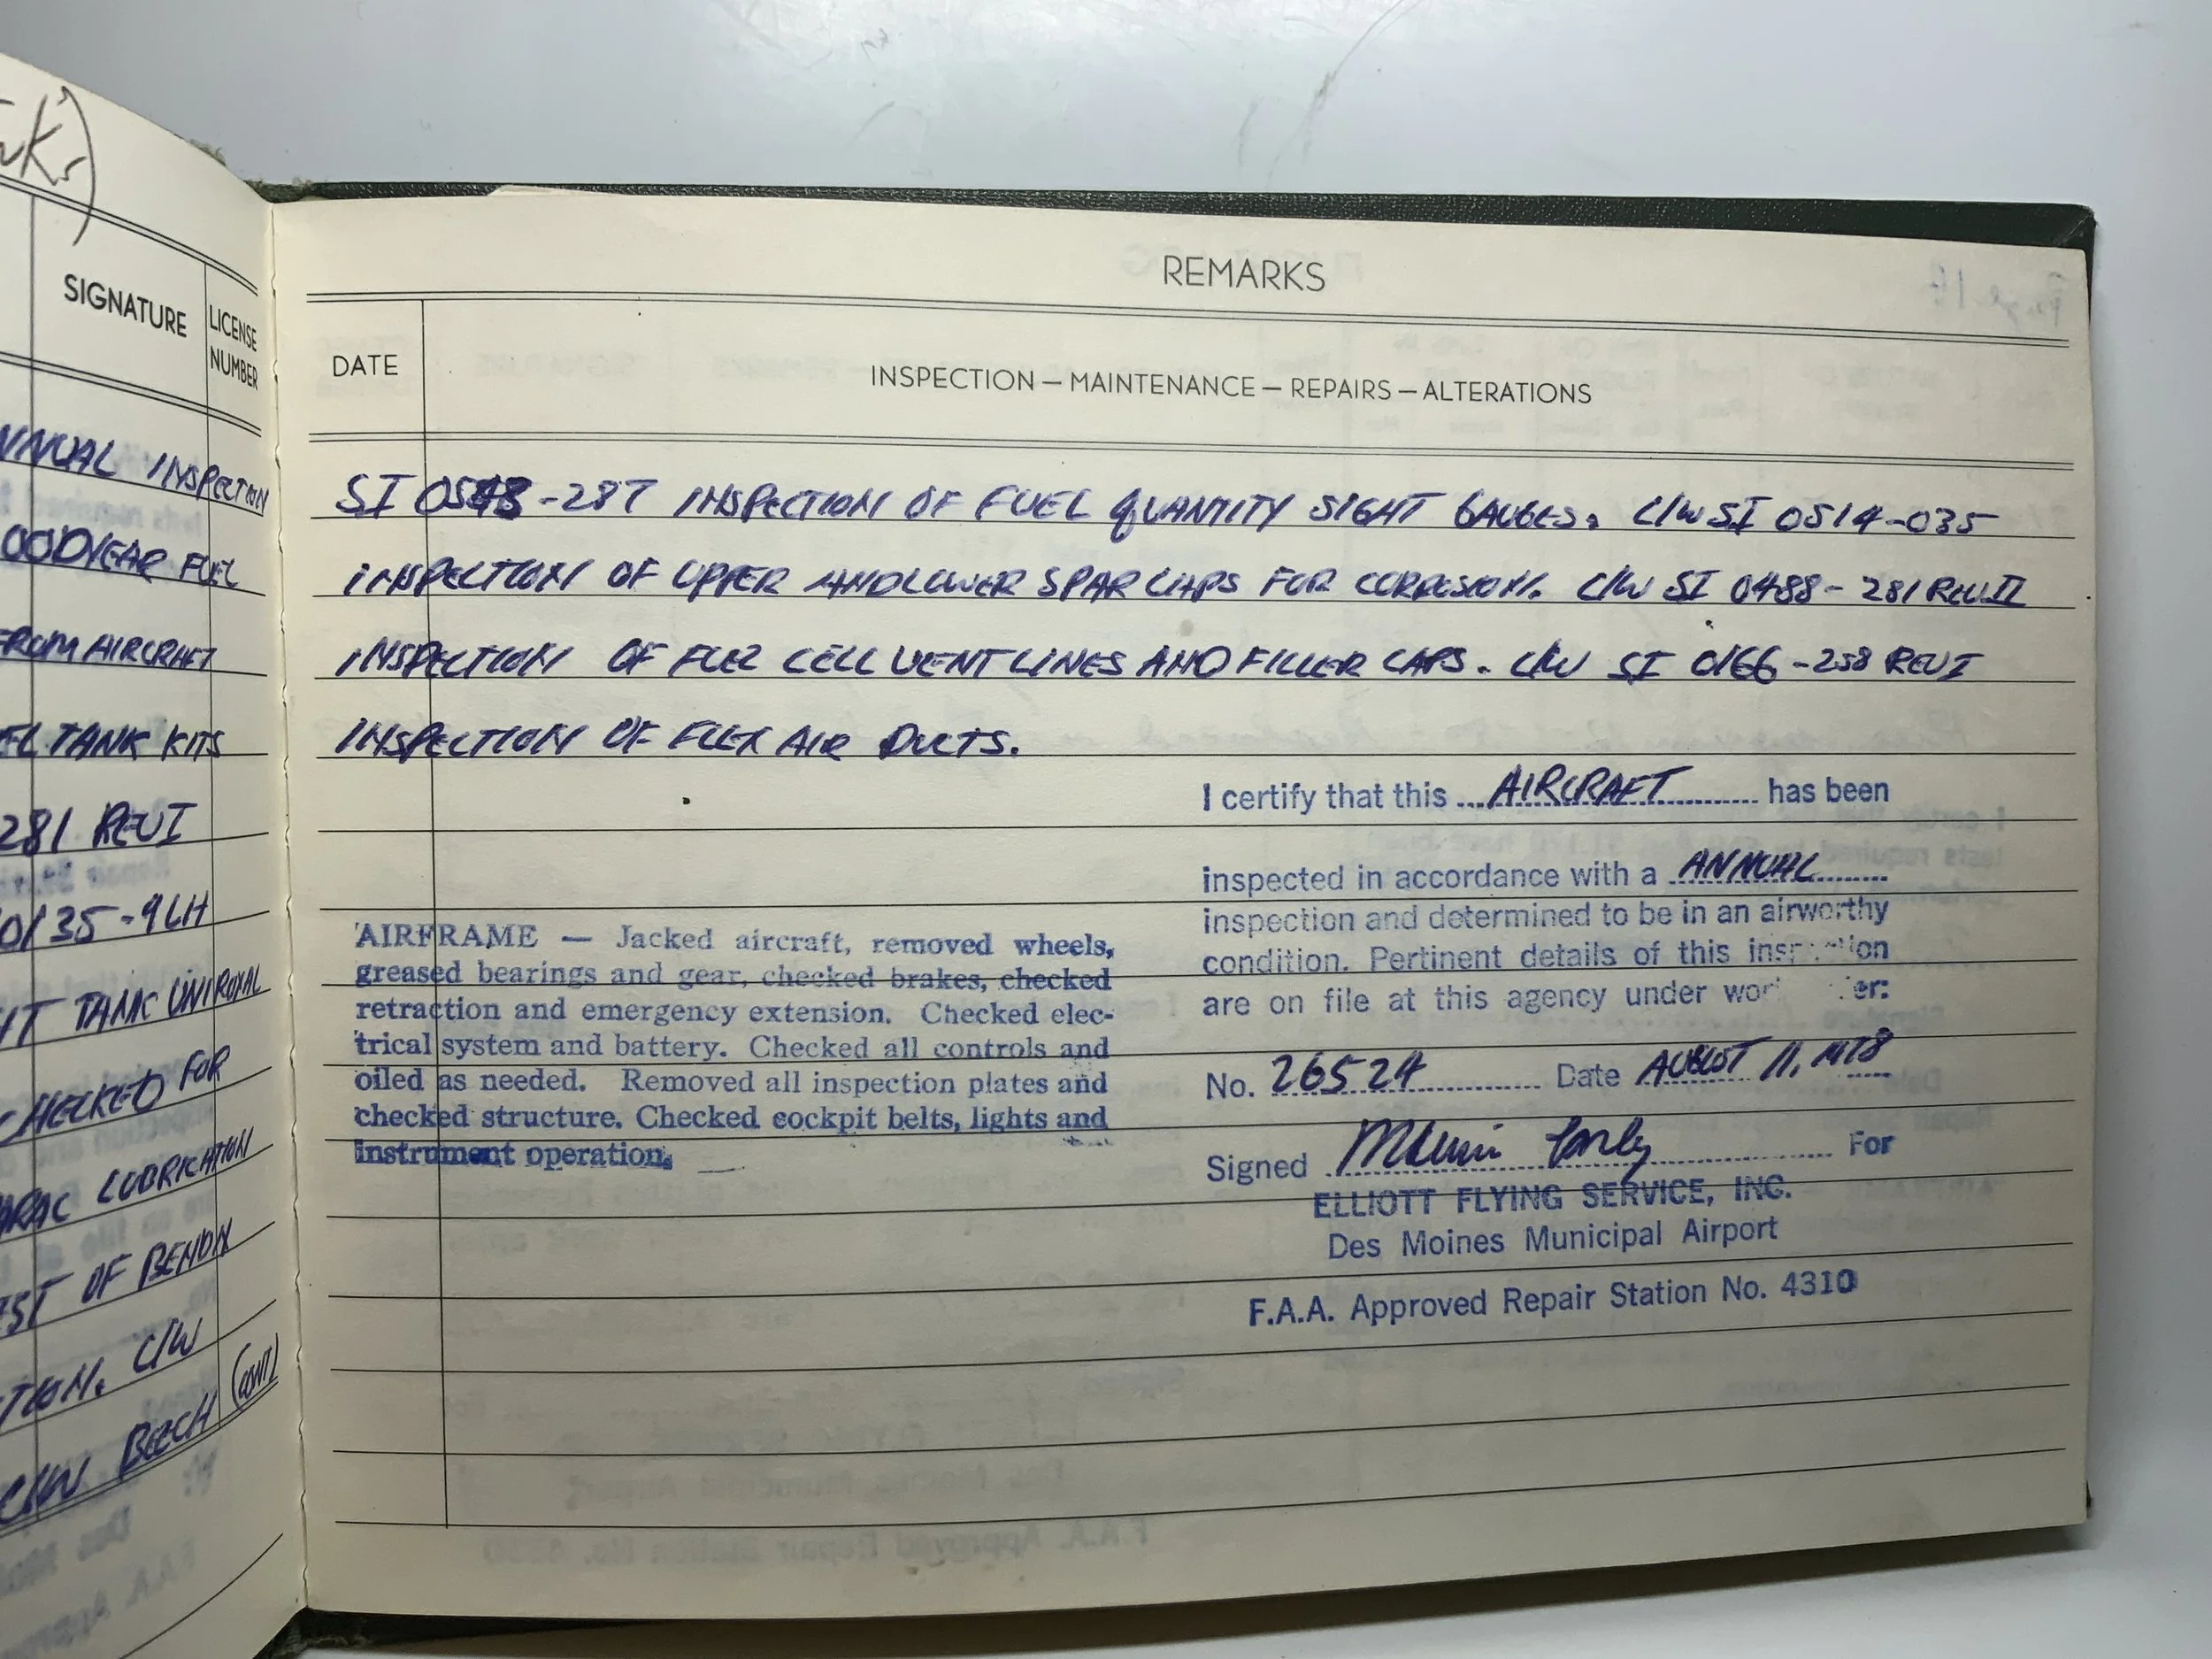 SIGNATURE
LICENSE
NUMBER
ANNUAL INSPECTION
GOODYEAR FUEL
FROM AIRCRAFT
TANK KITS
281 REV I
0135-9 LH
TANK UNIROYAL
CHECKED FOR
LUBRICATION
OF BENDIX
C/W
C/W BEECH (CONT)
REMARKS
DATE
INSPECTION — MAINTENANCE — REPAIRS — ALTERATIONS
SI -287 INSPECTION OF FUEL QUANTITY SIGHT GAUGES. C/W SI 0514-035
INSPECTION OF UPPER AND LOWER SPAR CAPS FOR CORROSION. C/W SI 0488-281 REV II
INSPECTION OF FUEL CELL VENT LINES AND FILLER CAPS. C/W SI 0166-258 REV I
INSPECTION OF FLEX AIR DUCTS.
I certify that this AIRCRAFT has been
inspected in accordance with a ANNUAL
inspection and determined to be in an airworthy
condition. Pertinent details of this inspection
are on file at this agency under work order:
No. 26524 Date AUGUST 11, 1978
Signed For
ELLIOTT FLYING SERVICE, INC.
Des Moines Municipal Airport
F.A.A. Approved Repair Station No. 4310
AIRFRAME — Jacked aircraft, removed wheels,
greased bearings and gear, checked brakes, checked
retraction and emergency extension. Checked elec-
trical system and battery. Checked all controls and
oiled as needed. Removed all inspection plates and
checked structure. Checked cockpit belts, lights and
instrument operation.